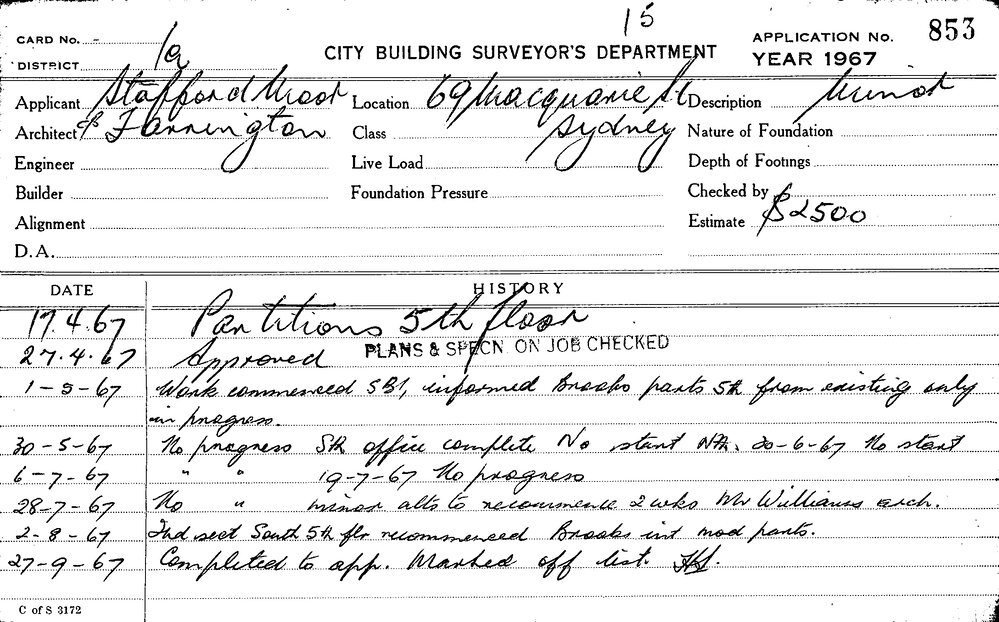 15
CARD No. - 1a CITY BUILDING SURVEYOR'S DEPARTMENT APPLICATION No. 853
DISTRICT YEAR 1967
Applicant Stafford Moor Location 69 Macquarie St Description Minor
Architect & Farrington Class Sydney Nature of Foundation
Engineer Live Load Depth of Footings
Builder Foundation Pressure Checked by
Alignment Estimate $2500
D.A.
DATE HISTORY
17.4.67 Partitions 5th floor
27.4.67 Approved PLANS & SPECN. ON JOB CHECKED
1-5-67 Work commenced SB1, informed Brooks parts 5th from existing only
in progress.
30-5-67 No progress Sth office complete No start Nth. 20-6-67 No start
6-7-67 " " 19-7-67 No progress
28-7-67 No " minor alts to recommence 2 wks Mr Williams arch.
2-8-67 2nd sect South 5th flr recommenced Brooks int mod parts.
27-9-67 Completed to app. Marked off list.
C of S 3172